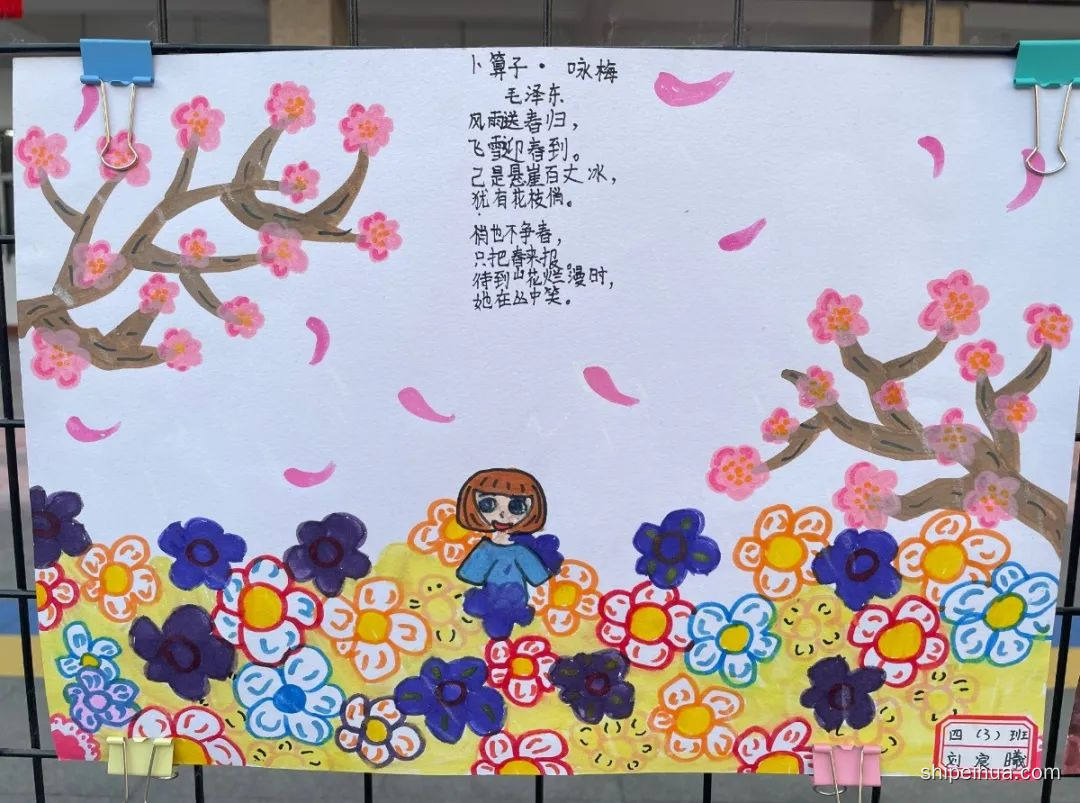 卜算子·咏梅
毛泽东
风雨送春归，
飞雪迎春到。
己是悬崖百丈冰，
犹有花枝俏。
俏也不争春，
只把春来报。
待到山花烂漫时，
她在丛中笑。
四（3）班
刘宸曦
shipeihua.com